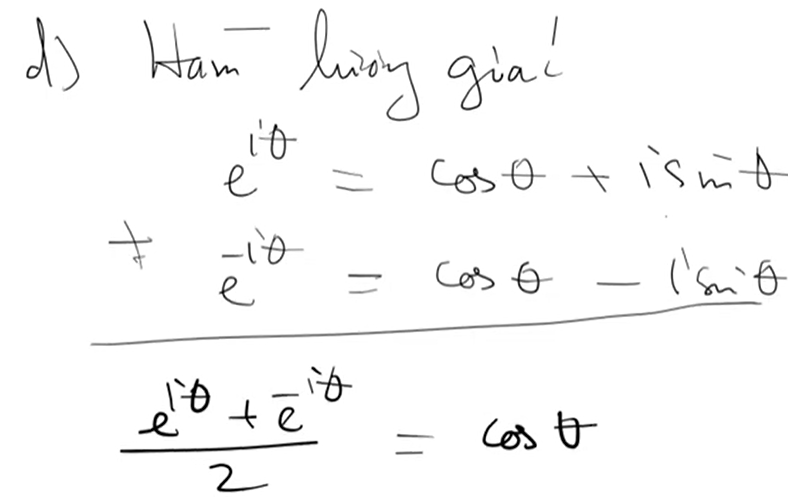 d) Hàm lượng giác
e^{iθ} = cos θ + i sin θ
+ e^{-iθ} = cos θ - i sin θ
\frac{e^{iθ} + e^{-iθ}}{2} = cos θ